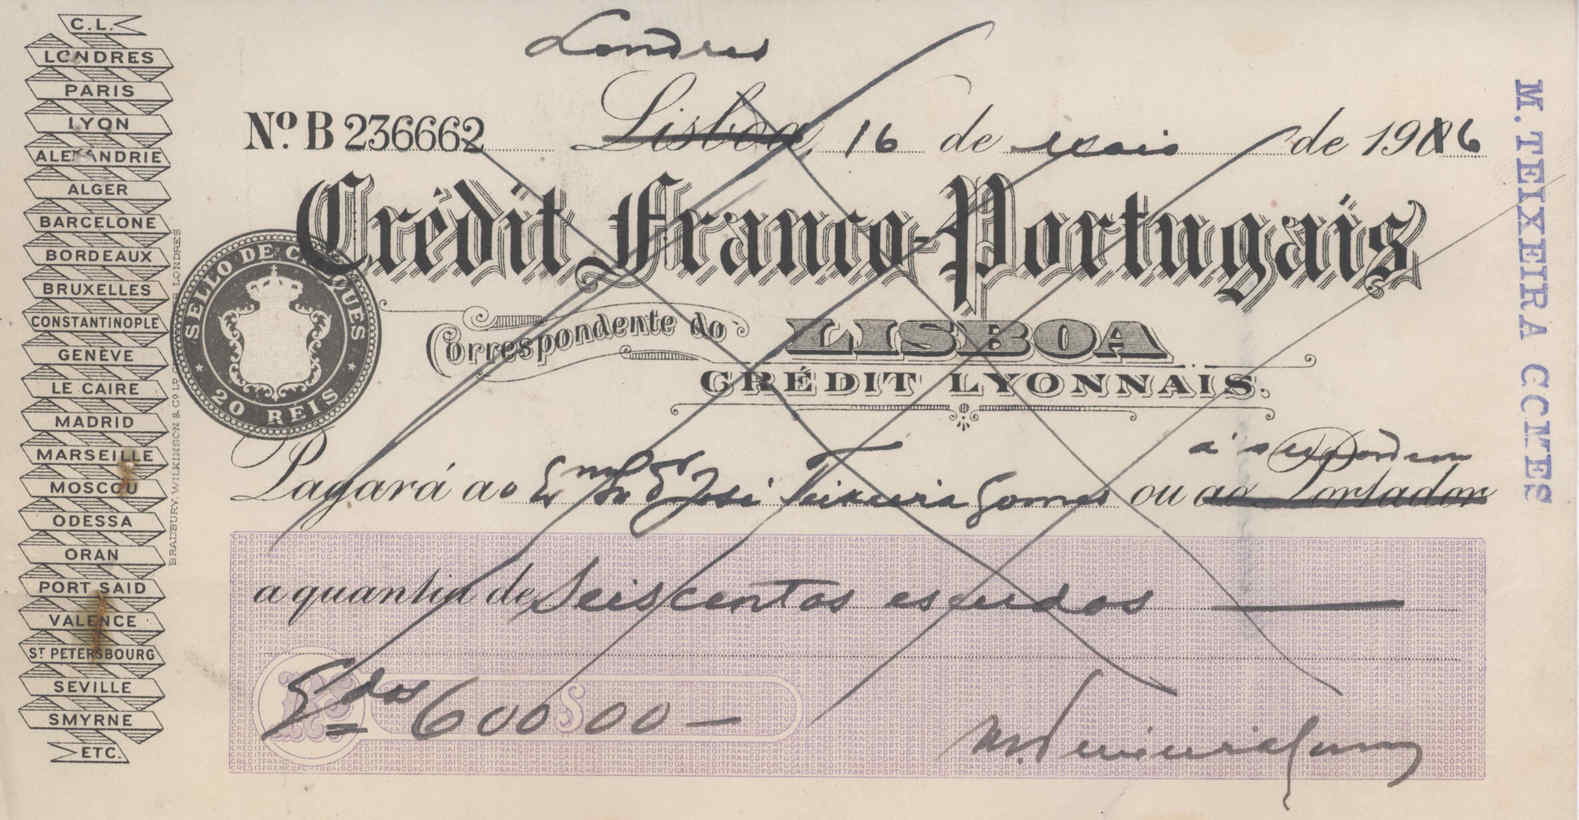 C.L.
LONDRES
PARIS
LYON
ALEXANDRIE
ALGER
BARCELONE
BORDEAUX
BRUXELLES
CONSTANTINOPLE
GENÈVE
LE CAIRE
MADRID
MARSEILLE
MOSCOU
ODESSA
ORAN
PORT SAID
VALENCE
ST PETERSBOURG
SEVILLE
SMYRNE
ETC.
BRADBURY, WILKINSON & Co LD LONDRES
Londres
No. B 236662 Lisboa, 16 de maio de 1916
Crédit Franco-Portugais
SELLO DE CHEQUES
20 REIS
Correspondente do LISBOA
CRÉDIT LYONNAIS.
Pagará ao Exmo Sr José Teixeira Gomes ou ao Portador
a quantia de Seiscentos escudos
600$00
M. Teixeira Gomes
M. TEIXEIRA GOMES